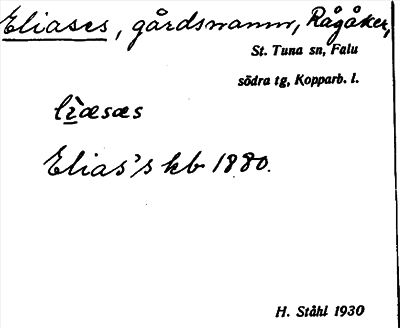 Eliases, gårdsnamn, Rågåker,
St. Tuna sn, Falu
södra tg, Kopparb. l.
lìæsæs
Elias's kb 1880.
H. Ståhl 1930